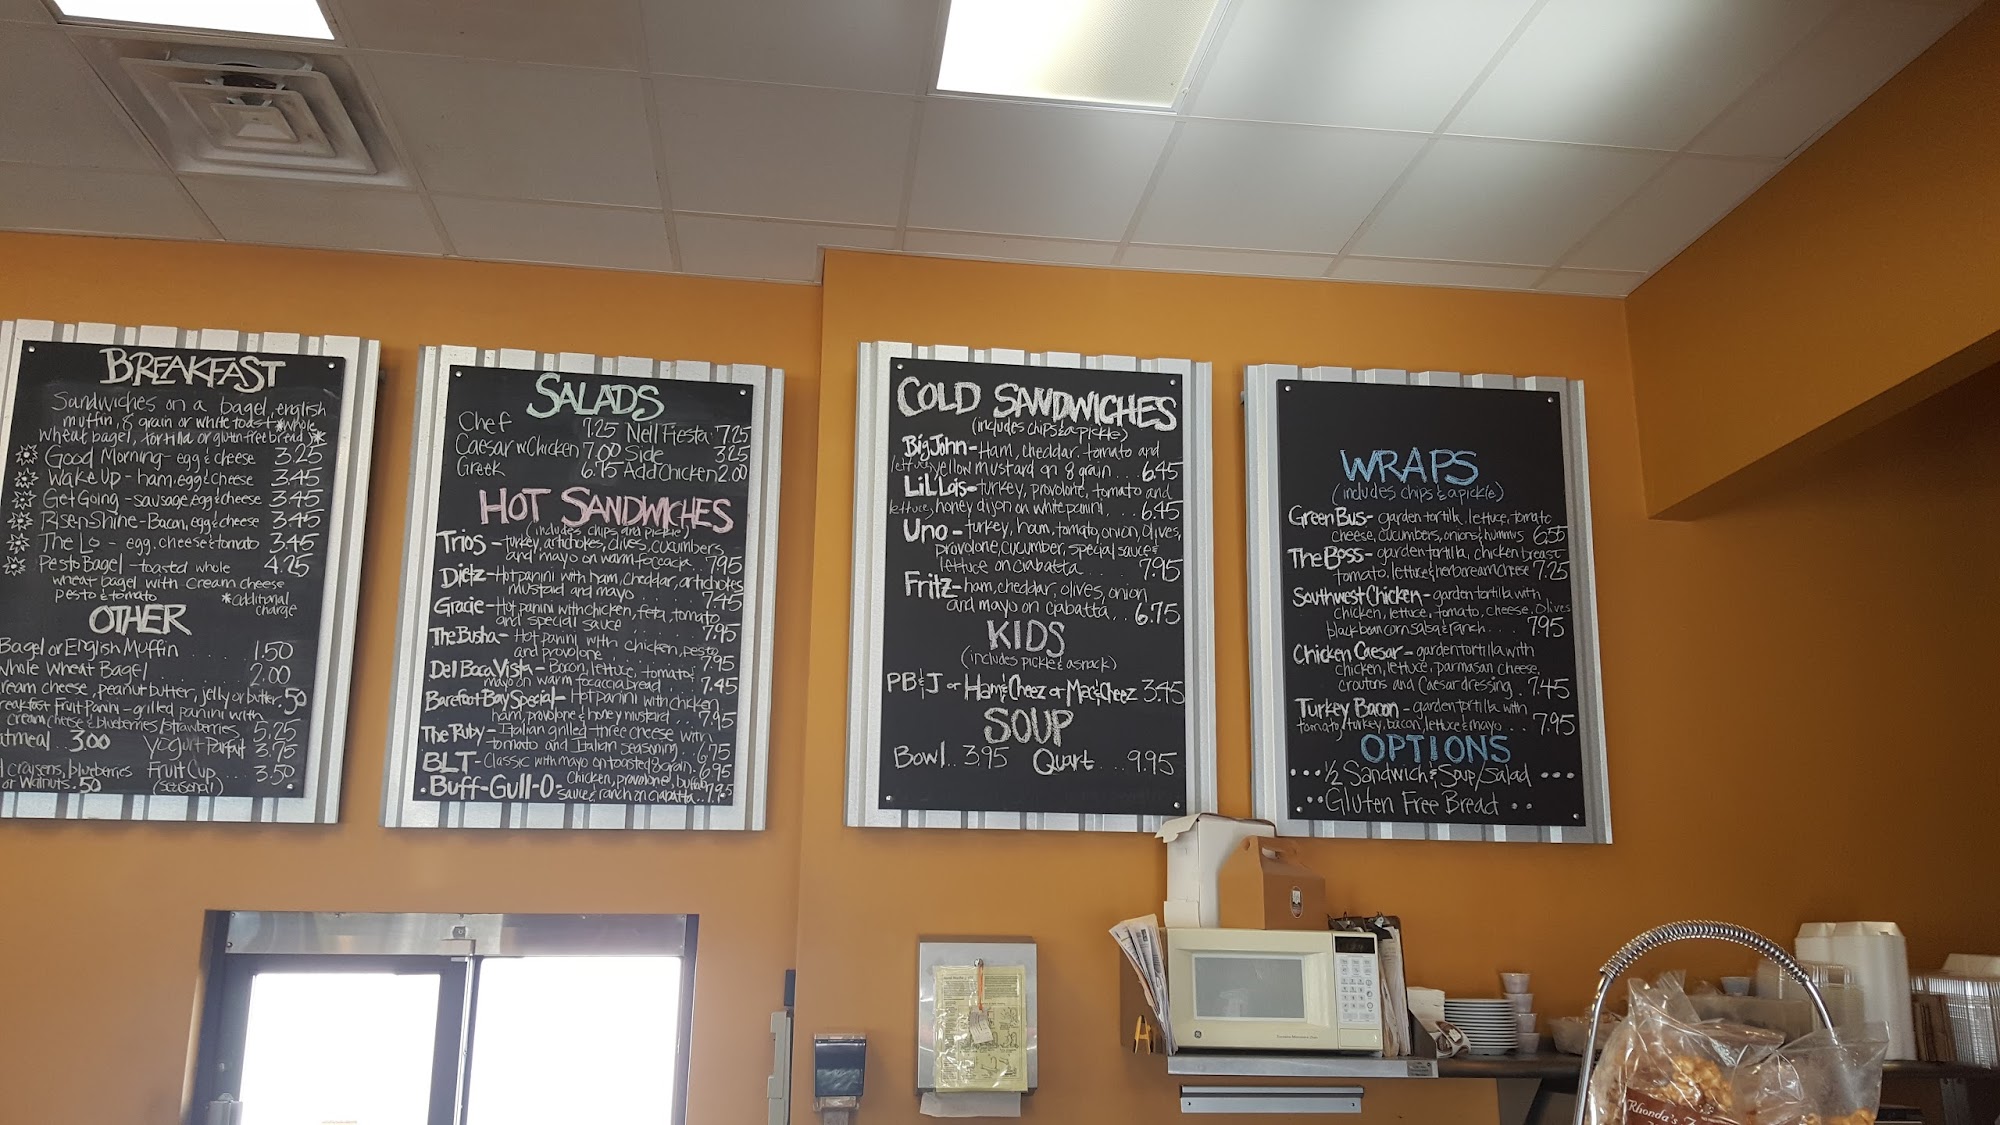 BREAKFAST
Sandwiches on a bagel, english
muffin, 8 grain or white toast *whole
wheat bagel, tortilla or gluten free bread)*
Good Morning - egg & cheese 3.25
Wake Up - ham, egg & cheese 3.45
Get Going - sausage, egg & cheese 3.45
Rise n Shine - Bacon, egg & cheese 3.45
The Lo - egg, cheese & tomato 3.45
Pesto Bagel - toasted whole 4.25
wheat bagel with cream cheese
pesto & tomato *additional
charge
OTHER
Bagel or English Muffin . . . . 1.50
Whole Wheat Bagel . . . . 2.00
ream cheese, peanut butter, jelly or butter .50
reakfast Fruit Panini - grilled panini with
cream cheese & blueberries/strawberries 5.25
atmeal .. 3.00 Yogurt Parfait 3.75
craisens, blueberries Fruit Cup ... 3.50
or walnuts .50 (seasonal)
SALADS
Chef 7.25 Nell Fiesta 7.25
Caesar w Chicken 7.00 Side 3.25
Greek 6.75 Add Chicken 2.00
HOT SANDWICHES
(includes chips and pickle)
Trios - turkey, artichokes, olives, cucumbers
and mayo on warm focaccia . . 7.95
Dietz - Hot panini with ham, cheddar, artichokes
mustard and mayo . . . . 7.45
Gracie - Hot panini with chicken, feta, tomato
and special sauce . . . . 7.95
The Busha - Hot panini with chicken, pesto
and provolone . . . . 7.95
Del Boca Vista - Bacon, lettuce, tomato &
mayo on warm focaccia bread . 7.45
Barefoot Bay Special - Hot panini with chicken
ham, provolone & honey mustard . . . 7.95
The Ruby - Italian grilled three cheese with
tomato and Italian seasoning . . 6.75
BLT - Classic with mayo on toasted 8 grain . 6.95
Buff-Gull-O - Chicken, provolone, buffalo
sauce & ranch on ciabatta . . . 7.95
COLD SANDWICHES
(includes chips & a pickle)
Big John - Ham, cheddar, tomato and
lettuce, yellow mustard on 8 grain . . . 6.45
LiL Lois - turkey, provolone, tomato and
lettuce, honey dijon on white panini . . . 6.45
Uno - turkey, ham, tomato, onion, olives,
provolone, cucumber, special sauce &
lettuce on ciabatta . . . 7.95
Fritz - ham, cheddar, olives, onion
and mayo on ciabatta . . . 6.75
KIDS
(includes pickle & a snack)
PB&J or Ham & Cheez or Mac & Cheez 3.45
SOUP
Bowl . . 3.95 Quart . . . 9.95
WRAPS
(includes chips & a pickle)
Green Bus - garden tortilla, lettuce, tomato
cheese, cucumbers, onions & hummus 6.55
The Boss - garden tortilla, chicken breast
tomato, lettuce & herb cream cheese 7.25
Southwest Chicken - garden tortilla with
chicken, lettuce, tomato, cheese, olives
black bean corn salsa & ranch . . . 7.95
Chicken Caesar - garden tortilla with
chicken, lettuce, parmasan cheese,
croutons and Caesar dressing . 7.45
Turkey Bacon - garden tortilla with
tomato, turkey, bacon, lettuce & mayo . . 7.95
OPTIONS
. . . ½ Sandwich & Soup/Salad . . .
. . . Gluten Free Bread . .
Rhonda's